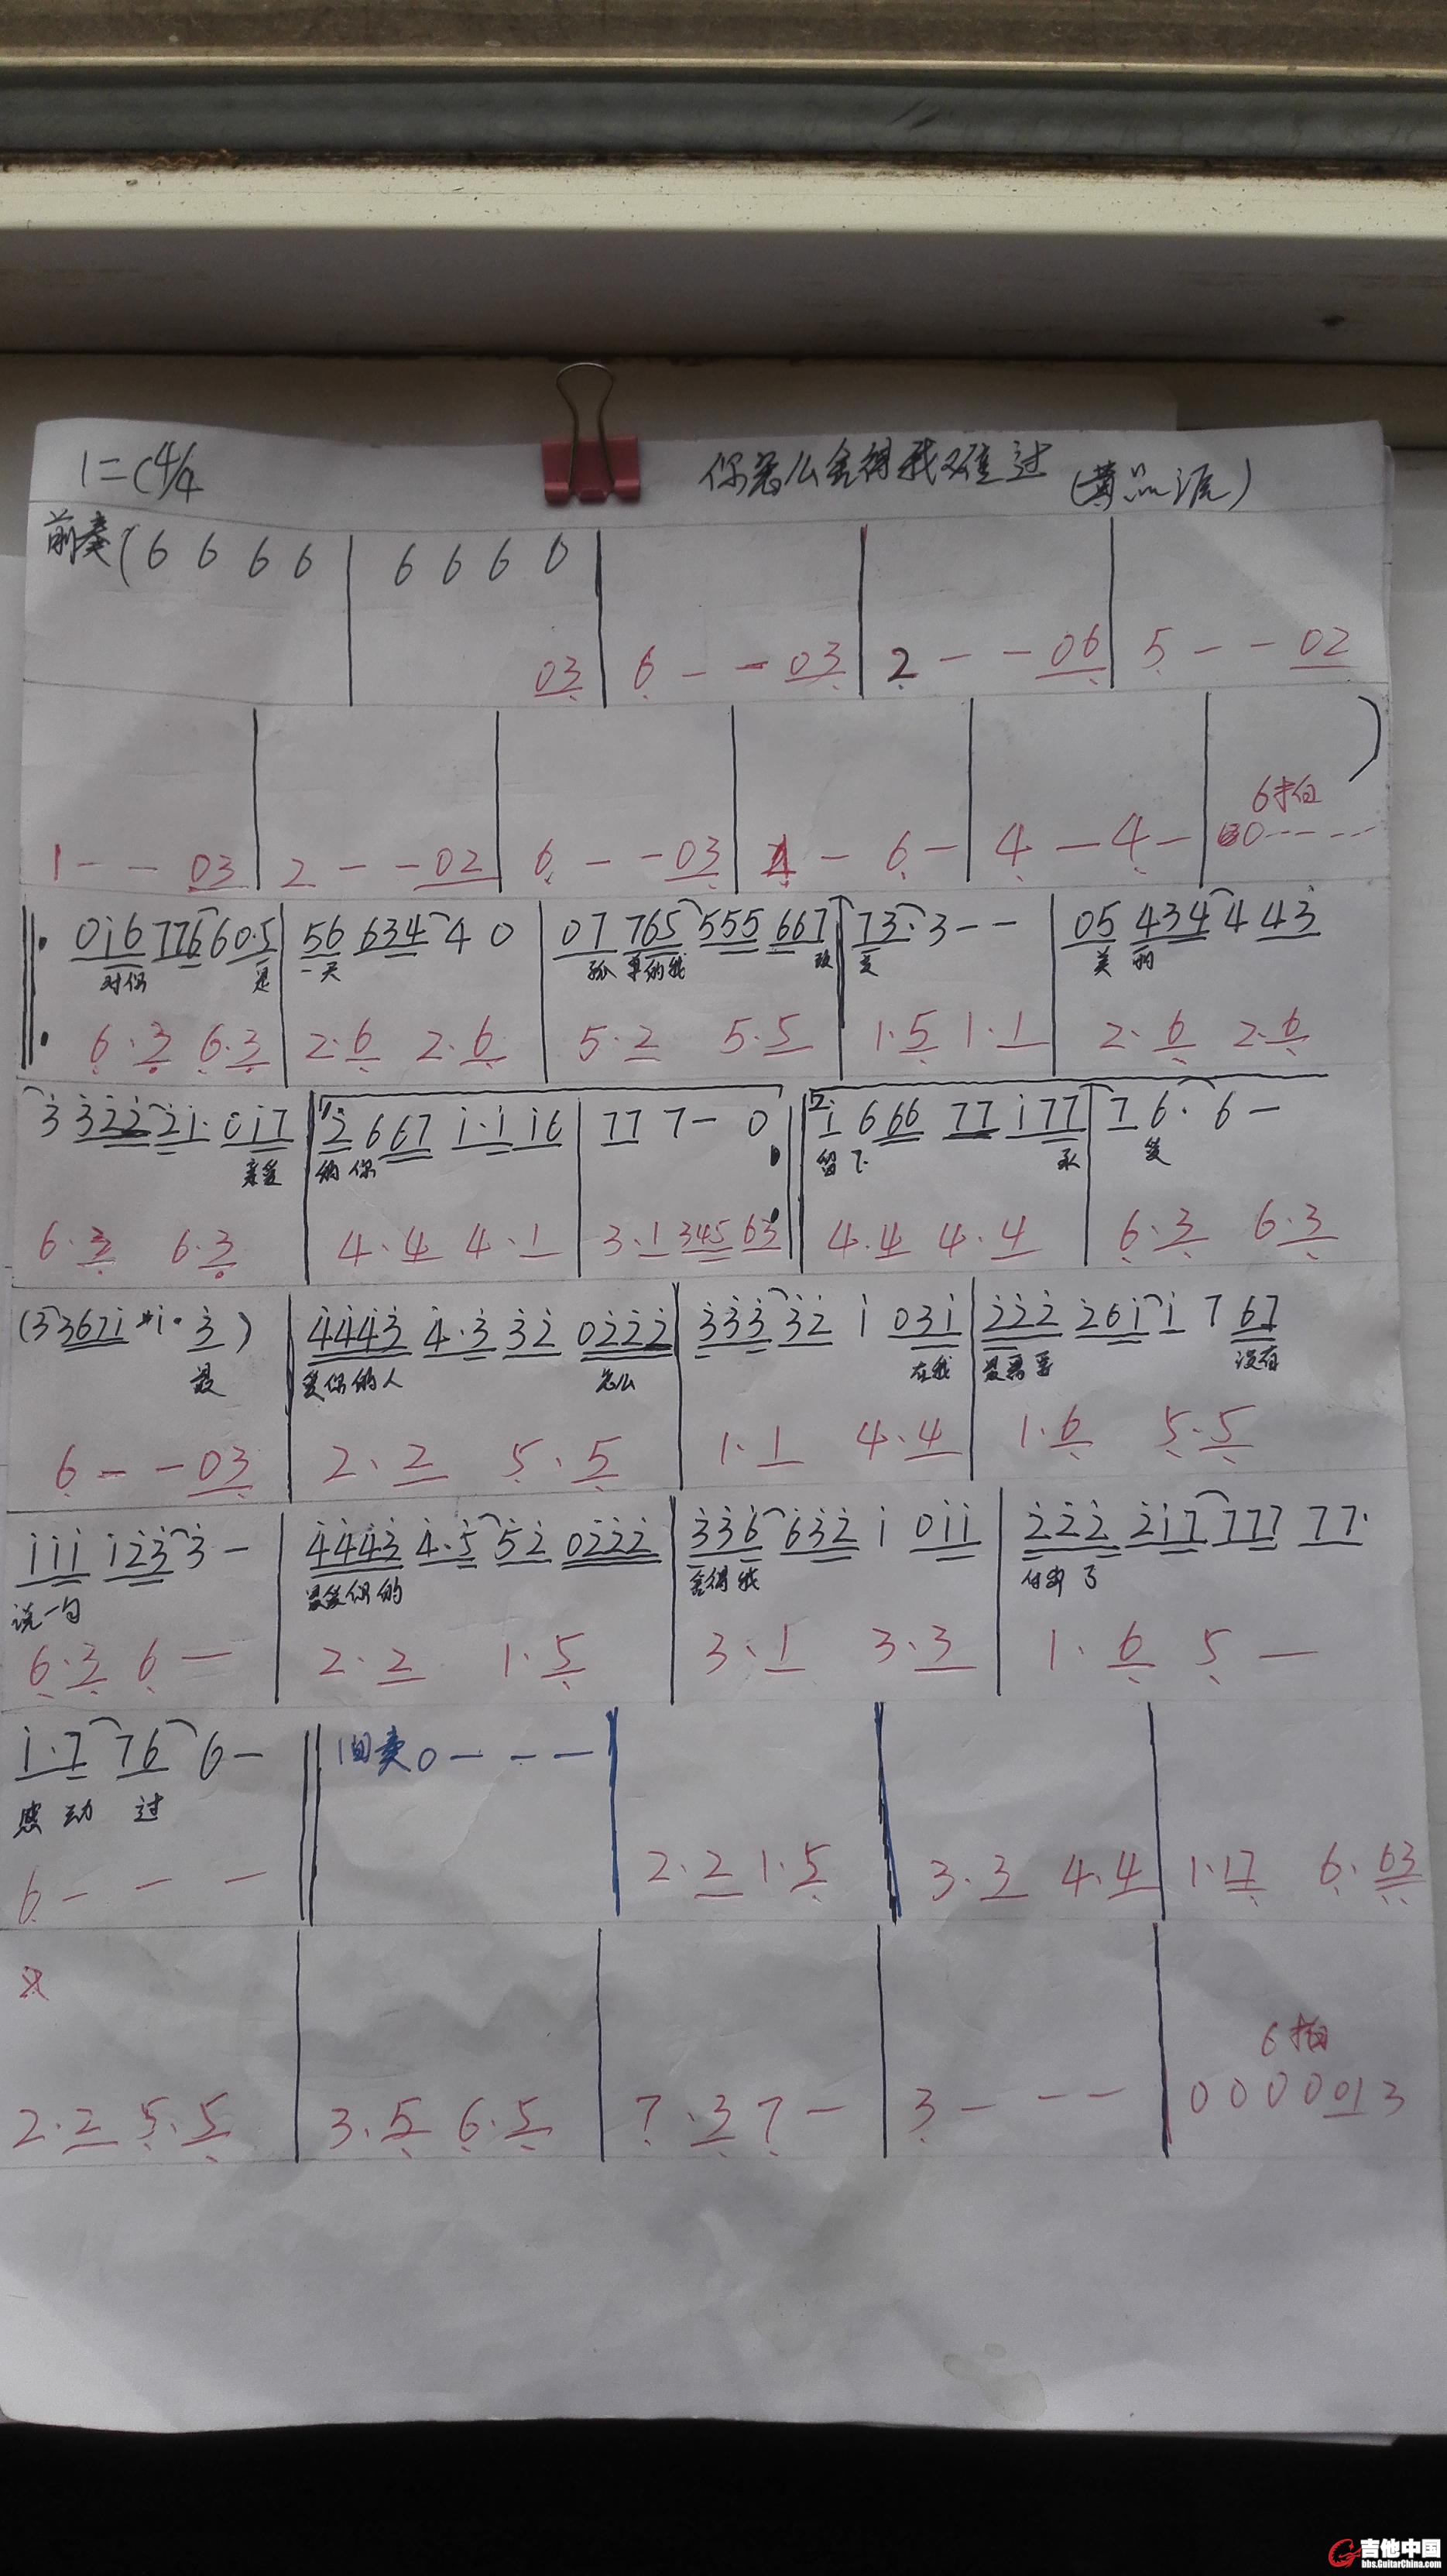 1=C 4/4 你怎么舍得我难过 (黄品源)
前奏 ( 6 6 6 6 | 6 6 6 0
03 | 6 - - 03 | 2 - - 06 | 5 - - 02
6拍 )
1 - - 03 | 2 - - 02 | 6 - - 03 | 4 - 6 - | 4 - 4 - | 0 - - - - -
0i6 776 60.5 | 56 634 4 0 | 07 765 555 667 | 73. 3 - - | 05 434 4 43
对你 是 一天 孤单的我 改 变 美丽
6.3 6.3 | 2.6 2.6 | 5.2 5.5 | 1.5 1.1 | 2.6 2.6
3 322 21. 017 | 1. 2 667 i.i i6 | 77 7 - 0 | 2. i 666 77 i77 | 7 6. 6 -
亲爱 的你 留下 永 爱
6.3 6.3 | 4.4 4.1 | 3.1 345 63 | 4.4 4.4 | 6.3 6.3
(3 367i i. 3) | 4443 4.3 32 0222 | 333 32 i 03i | 222 26i i 7 67
最 爱你的人 怎么 在我 最需要 没有
6 - - 03 | 2.2 5.5 | 1.1 4.4 | 1.6 5.5
iii i23 3 - | 4443 4.5 52 0222 | 336 632 i 0ii | 222 2i7 777 77.
说一句 最爱你的 舍得我 付出了
6.3 6 - | 2.2 1.5 | 3.1 3.3 | 1.6 5 -
i.7 76 6 - | 间奏 0 - - -
感动 过
6 - - - | 2.2 1.5 | 3.3 4.4 | 1.17 6.63
6拍
2.2 5.5 | 3.5 6.5 | 7.3 7 - | 3 - - - | 0 0 0 0 01 3
吉他中国
bbs.GuitarChina.com